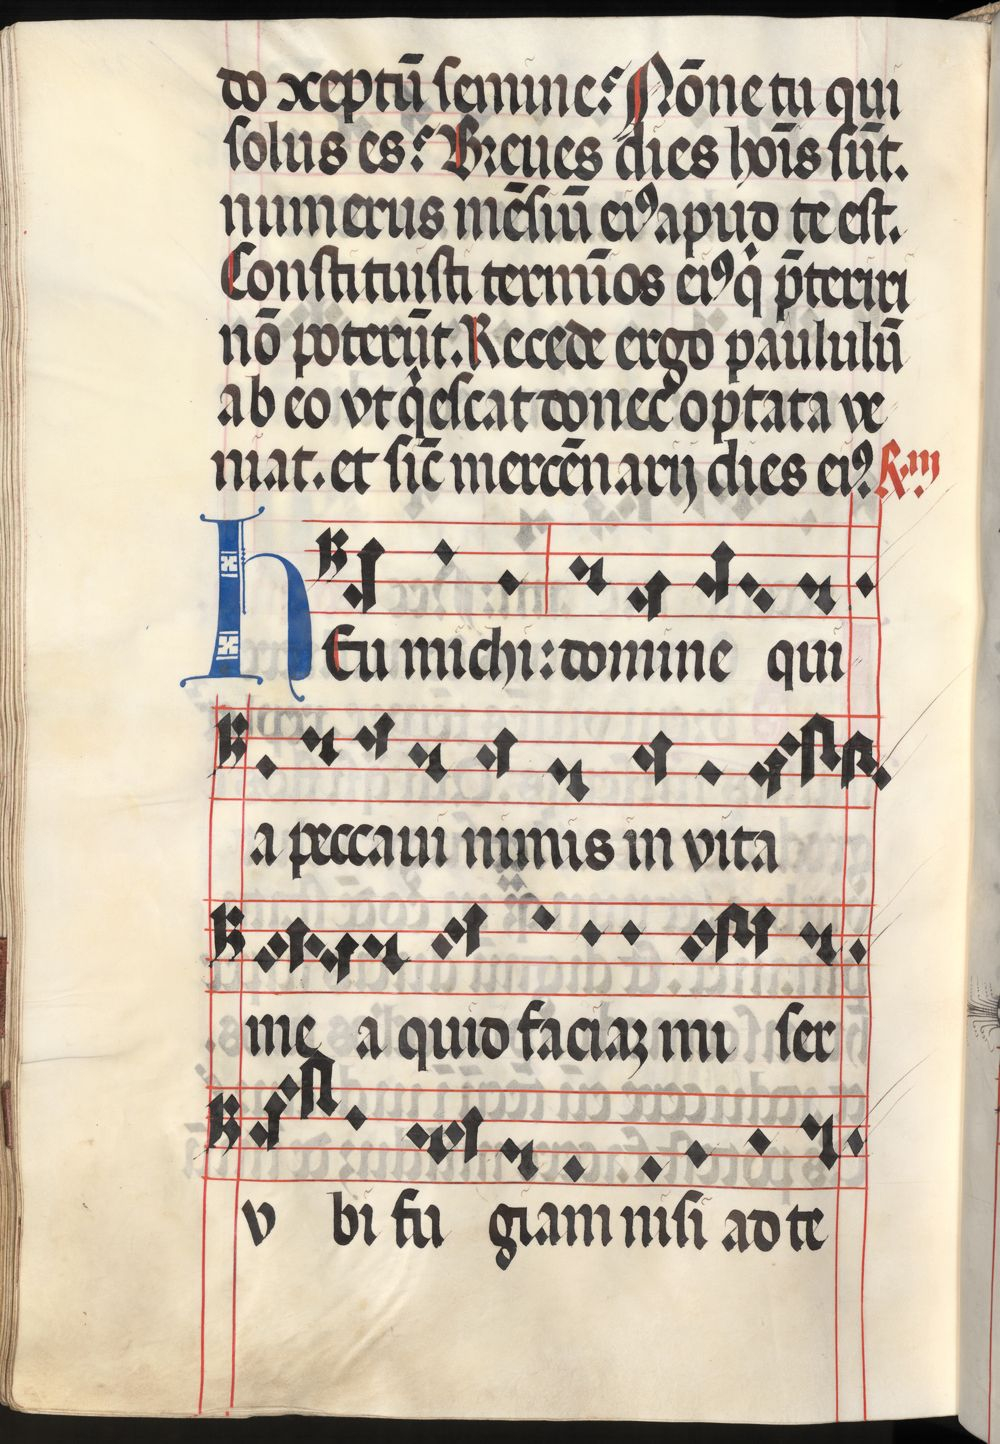 do ↄceptū semine? Nōne tu qui
solus es? Breues dies hoīs sūt.
numerus mēsiū eiꝰ apud te est.
Constituisti termīos eiꝰ q̇ p̄teriri
nō poterūt. Recede ergo paululū
ab eo vt q̇escat donec optata ve
niat. et sic̄ mercēnarij dies eiꝰ. R. iij
hEu michi: domine qui
a peccaui nimis in vita
me a quid faciaꝫ mi ser
v bi fu giam nisi ad te